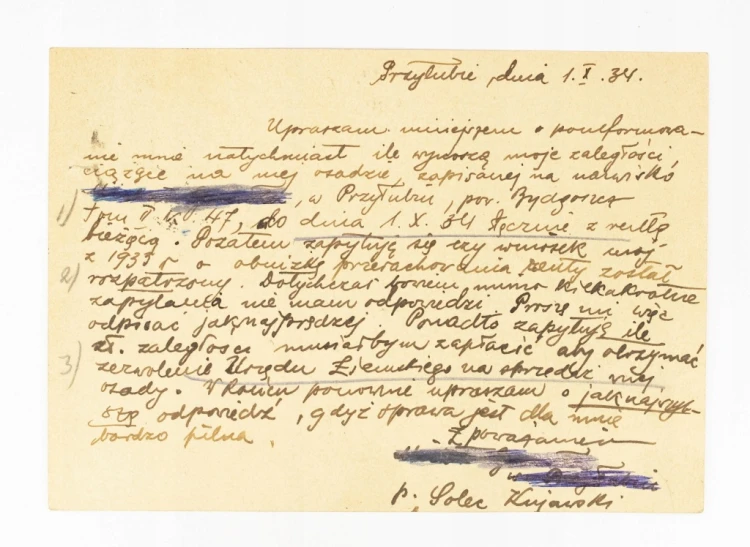 Przyłubie, dnia 1.X.34.
Upraszam niniejszem o poinformowa-
nie mnie natychmiast ile wynoszą moje zaległości,
ciążące na mej osadzie, zapisanej na nazwisko
1) , w Przyłubiu, pow. Bydgoszcz
tom II 47, do dnia 1.X.34 łącznie z rentą
bieżącą. Pozatem zapytuję się czy wniosek mój
2) z 1933 r o obniżkę przerachowania renty został
rozpatrzony. Dotychczas bowiem mimo kilkakrotne
zapytania nie mam odpowiedzi. Proszę mi więc
odpisać jaknajprędzej. Ponadto zapytuję ile
3) zł. zaległości musiałbym zapłacić aby otrzymać
zezwolenie Urzędu Ziemskiego na sprzedaż mej
osady. W końcu ponownie upraszam o jaknajszyb-
szą odpowiedź, gdyż sprawa jest dla mnie
bardzo pilna.
Z poważaniem
w
p. Solec Kujawski